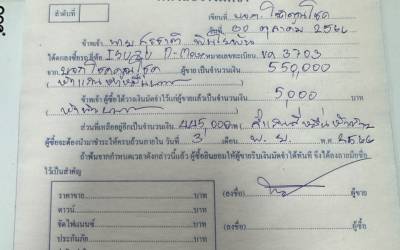 ลำดับที่
เขียนที่ บจก. โชคคูณโชค
วันที่ 02 ตุลาคม 2566
ข้าพเจ้า นาย
ได้ตกลงซื้อรถยี่ห้อ ISUZU D-Max หมายเลขทะเบียน 3703
จาก บจก โชคคูณโชค ผู้ขาย เป็นจำนวนเงิน 550,000
(ห้าแสนห้าหมื่นบาท)
ข้าพเจ้า ผู้ซื้อได้วางเงินมัดจำไว้แก่ผู้ขายแล้วเป็นจำนวนเงิน 5,000 บาท
(ห้าพันบาท)
ส่วนที่เหลืออยู่อีกเป็นจำนวนเงิน 445,000
ผู้ซื้อจะต้องนำมาชำระให้ครบถ้วนภายใน วันที่ 3 เดือน พ.ย. พ.ศ. 2566
ถ้าพ้นจากกำหนดเวลาดังกล่าวนี้แล้ว ผู้ซื้อยินยอมให้ผู้ขายริบเงินมัดจำได้ทันที จึงได้ลงลายมือชื่อ
ไว้เป็นสำคัญ
ราคาขาย บาท
ดาวน์ บาท (ลงชื่อ) ผู้ขาย
จัดไฟแนนซ์ บาท
ประกันภัย บาท (ลงชื่อ) ผู้ซื้อ